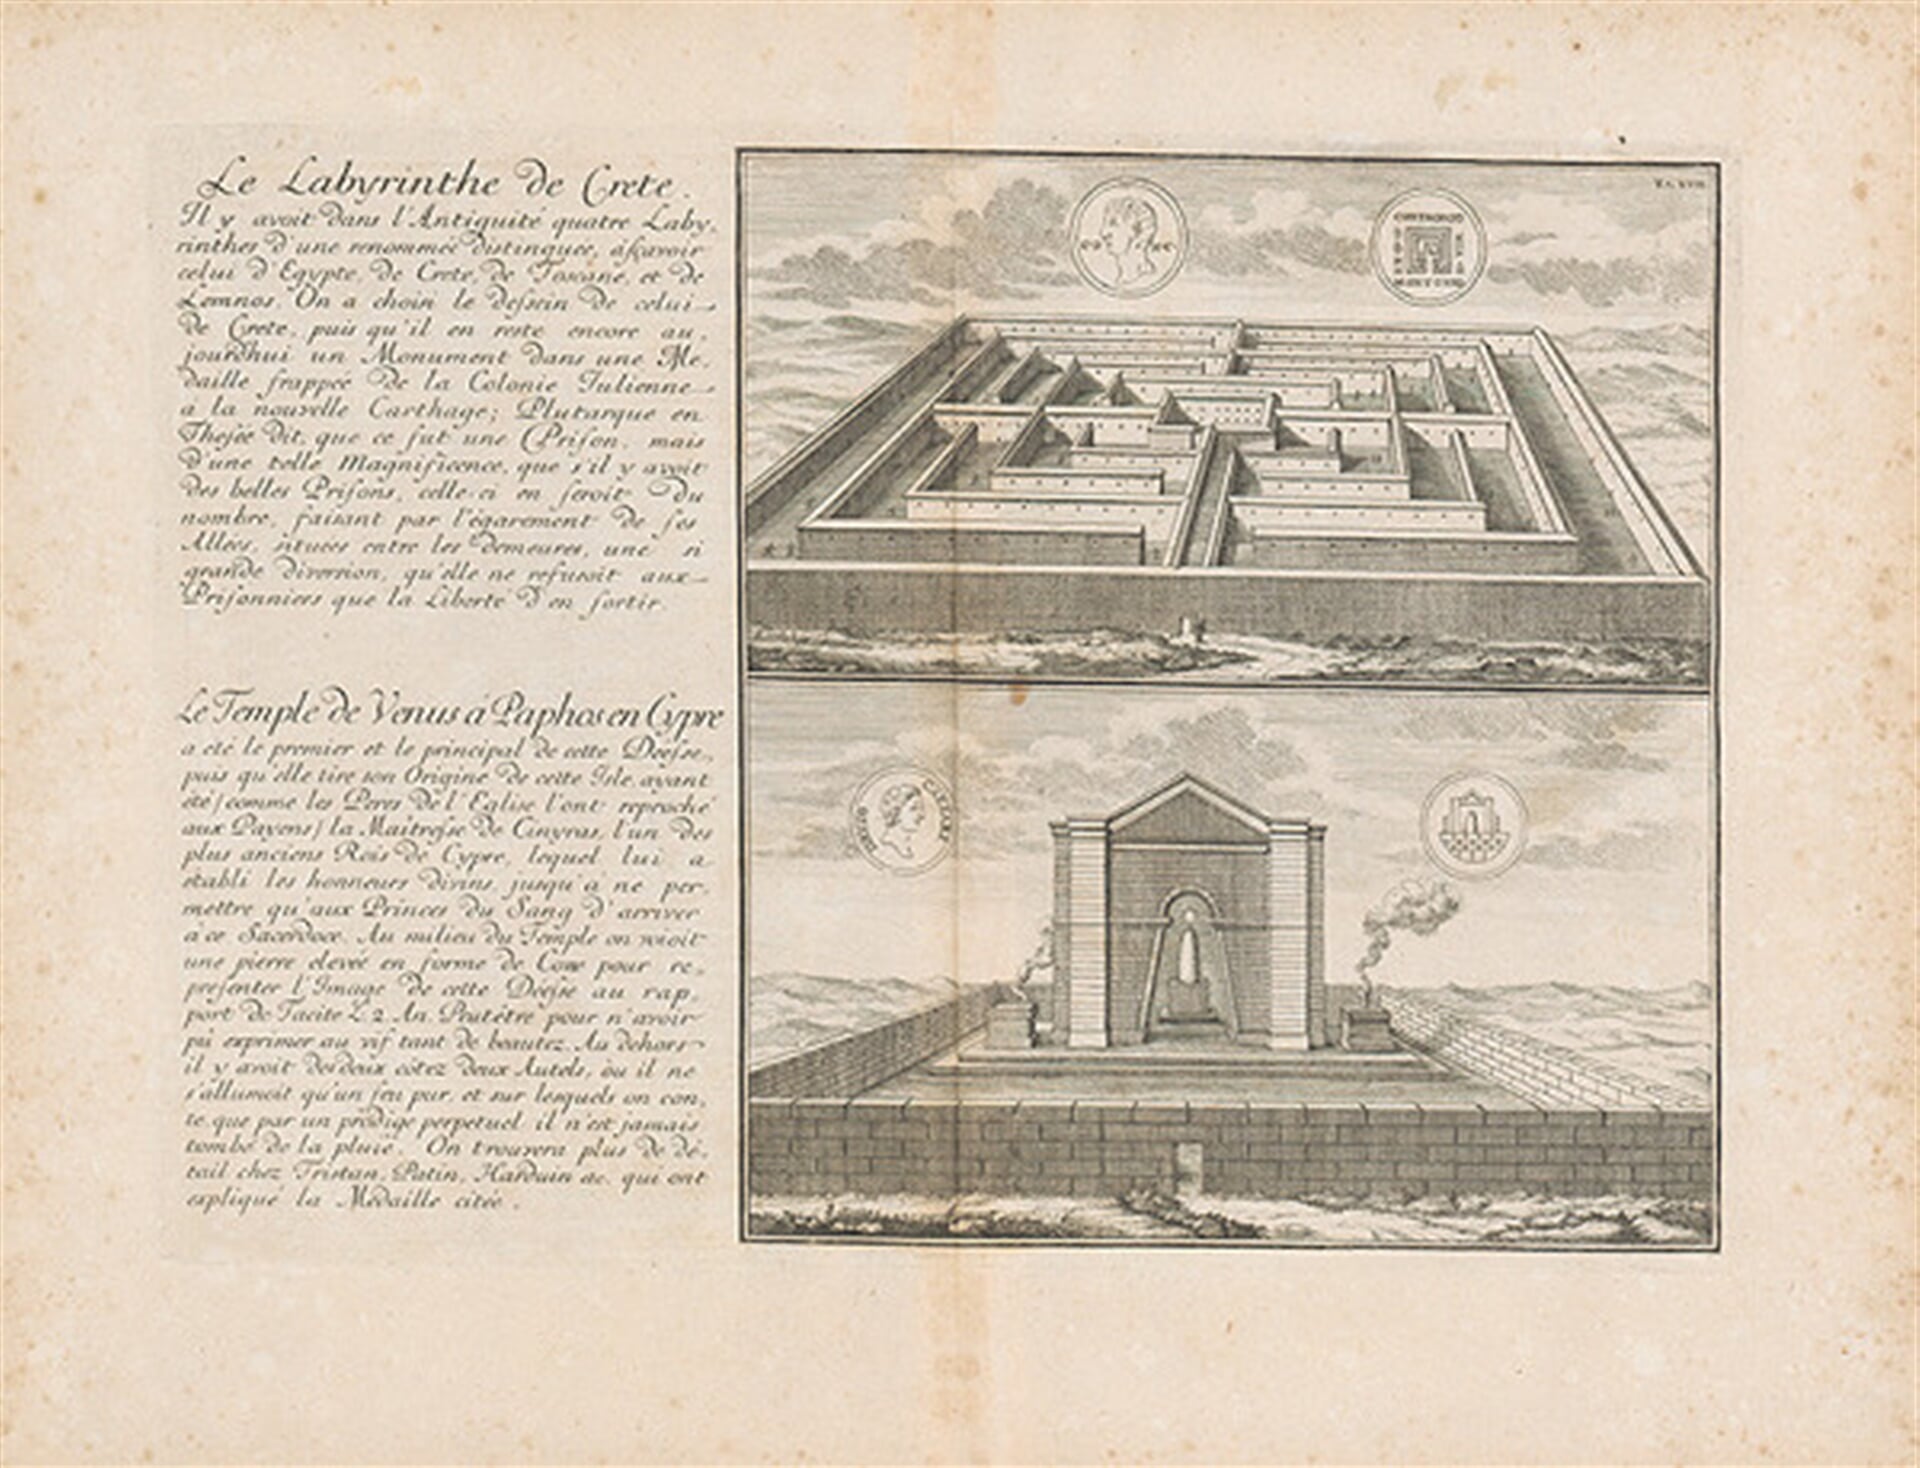 Le Labyrinthe de Crete.
Il y avoit dans l'Antiquité quatre Laby,
rinthes d'une renommée distinguée, àsçavoir
celui d'Egypte, de Crete, de Toscane, et de
Lemnos. On a choisi le dessein de celui
de Crete, puis qu'il en reste encore au,
jourdhui un Monument dans une Me,
daille frappée de la Colonie Julienne
a la nouvelle Carthage; Plutarque en
Thesée dit, que ce fut une Prison, mais
d'une telle Magnificence, que s'il y avoit
des belles Prisons, celle-ci en seroit du
nombre, faisant par l'égarement de ses
Allées, situées entre les demeures, une si
grande diversion, qu'elle ne refusoit aux
Prisonniers que la Liberté d'en sortir.
Le Temple de Venus à Paphos en Cypre
a eté le premier et le principal de cette Déesse,
puis qu'elle tire son Origine de cette Isle, ayant
eté/comme les Peres de l'Eglise l'ont reproché
aux Payens/ la Maitresse de Cinyras, l'un des
plus anciens Rois de Cypre, lequel lui a
établi les honneurs divins, jusqu'à ne per,
mettre qu'aux Princes du Sang d'arriver
à ce Sacerdoce. Au milieu du Temple on voioit
une pierre elevée en forme de Cone pour re,
presenter l'Image de cette Déesse au rap,
port de Tacite L 2 An. Peutêtre pour n'avoir
pû exprimer au vif tant de beautez. Au dehors
il y avoit des deux côtez deux Autels, où il ne
s'allumoit qu'un feu pur, et sur lesquels on con,
te que par un prodige perpetuel il n'est jamais
tombé de la pluie. On trouvera plus de dé,
tail chez Tristan, Patin, Harduin &c. qui ont
expliqué la Médaille citée.